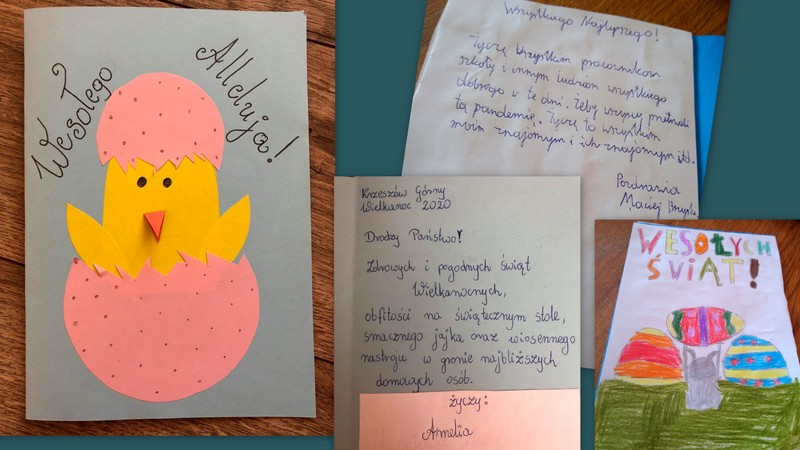 Wesołego
Alleluja!
Wszystkiego Najlepszego!
Życzę wszystkim pracownikom
szkoły i innym ludziom wszystkiego
dobrego w te dni. Żeby wszyscy przetrwali
tą pandemię. Życzę to wszystkim
moim znajomym i ich znajomym itd.
Pozdrawia
Maciej
Krzeszów Górny
Wielkanoc 2020
Drodzy Państwo!
Zdrowych i pogodnych świąt
Wielkanocnych,
obfitości na świątecznym stole,
smacznego jajka oraz wiosennego
nastroju w gronie najbliższych
domowych osób.
życzy:
Amelia
WESOŁYCH
ŚWIĄT!